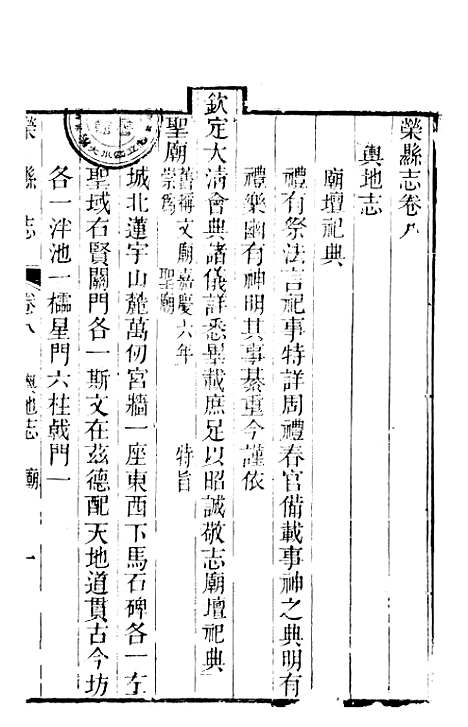 榮縣志卷八
輿地志
廟壇祀典
禮有祭法言祀事特詳周禮春官備載事神之典明有
禮樂幽有神明其事綦重今謹依
欽定大清會典諸儀詳悉畢載庶足以昭誠敬志廟壇祀典
聖廟舊稱文廟嘉慶六年特旨崇為聖廟
城北蓮宇山麓萬仞宮牆一座東西下馬石碑各一左
聖域右賢關門各一斯文在茲德配天地道貫古今坊
各一泮池一櫺星門六柱戟門一
榮縣志 卷八 輿地志 廟 一